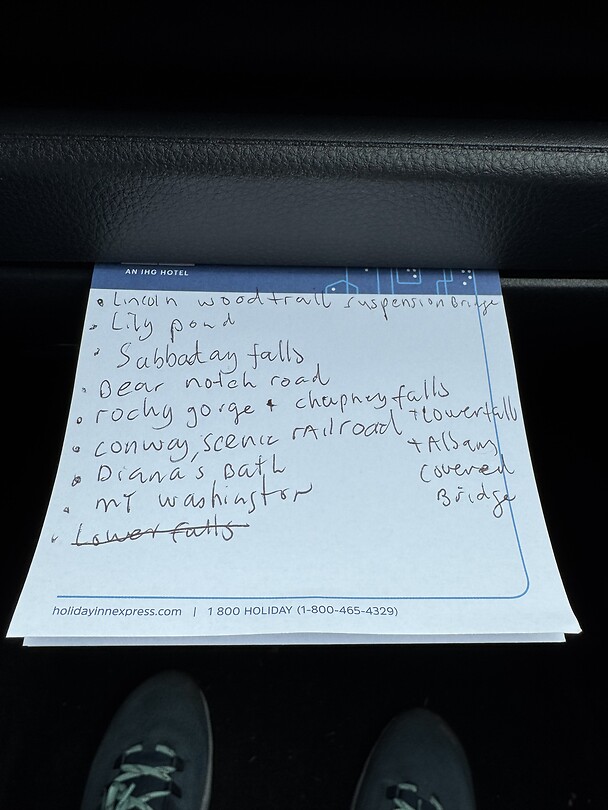 AN IHG HOTEL
• Lincoln woodtrail suspension Bridge
• Lily pond
• Sabbaday falls
• Bear notch road
• rochy gorge + chapney falls
+ Lowerfalls
• conway, scenic rAilroad
+ Albany
• Diana's BatH
covered
• mT washington
Bridge
• Lower falls
holidayinnexpress.com | 1 800 HOLIDAY (1-800-465-4329)